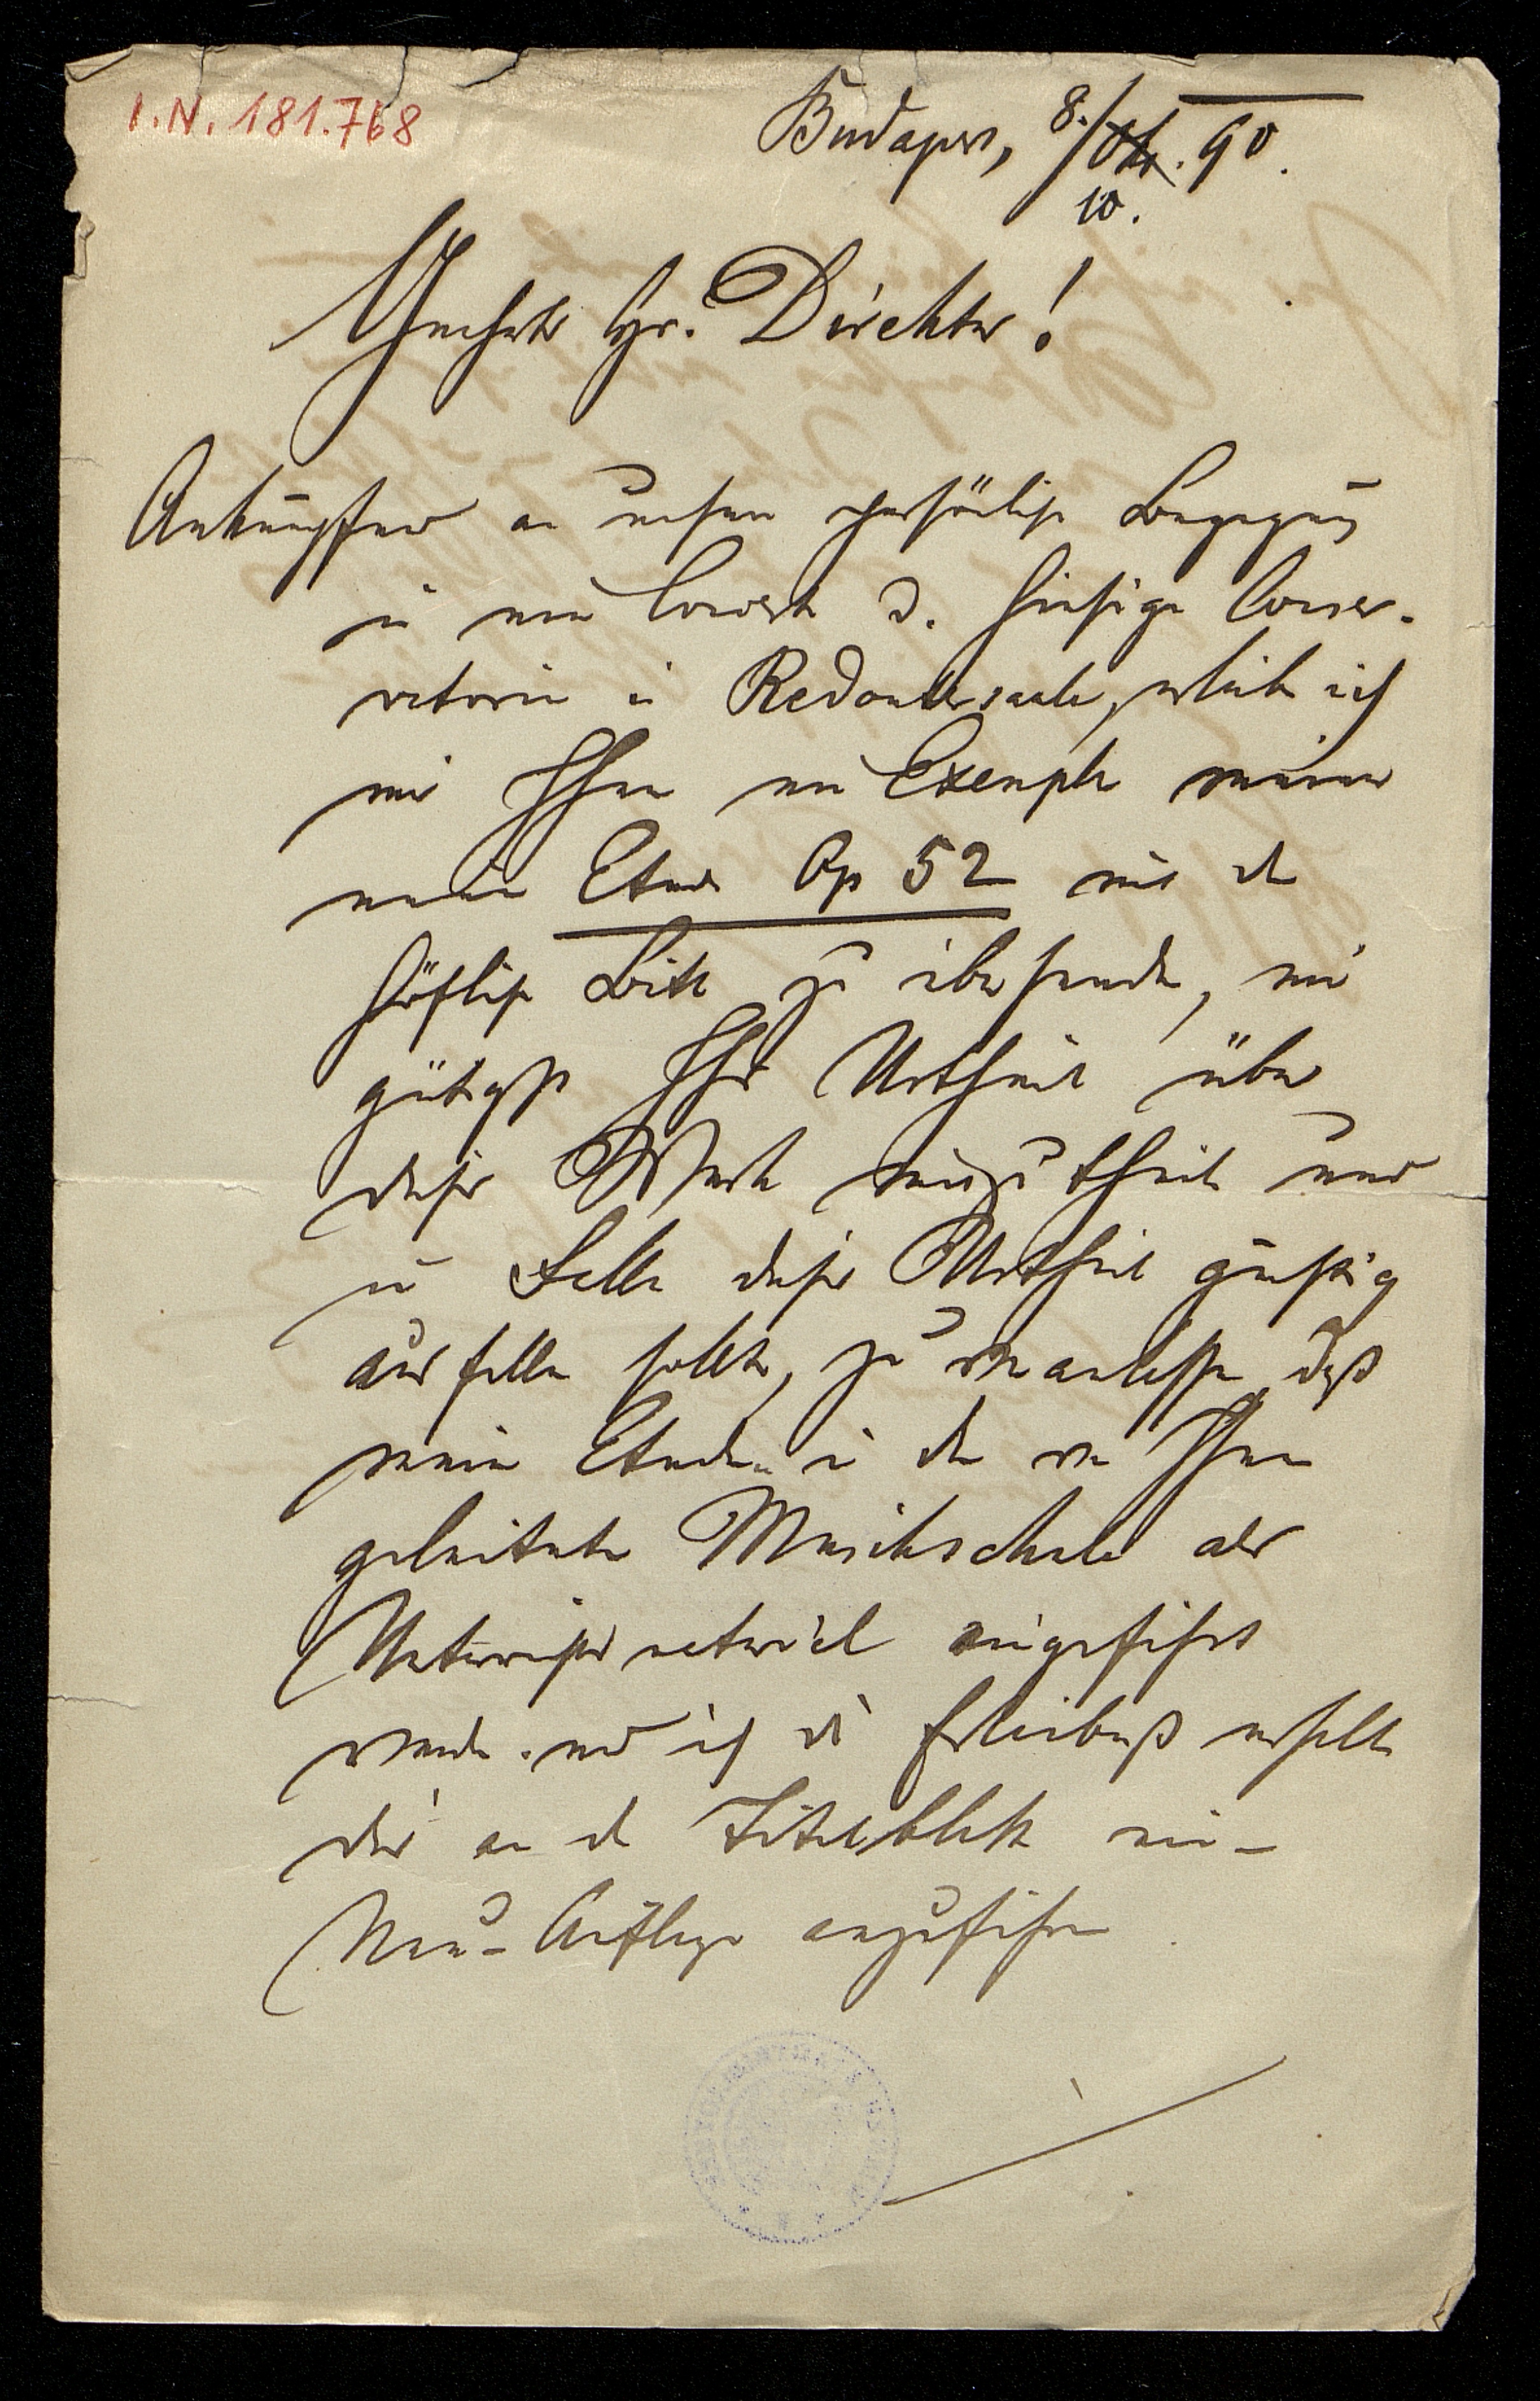 I.N. 181.768
Budapest, 8./10. 90.
Geehrter Hr. Direktor!
Anknüpfend an unsere persönliche Begegnung
in einem Concerte d. hiesigen Conser-
vatoriums im Redoutensaale, erlaube ich
mir Ihnen ein Exemplar meiner
neuen Etuden Op 52 mit der
höflichen Bitte zu übersenden, mir
gütigst Ihr Urtheil über
dieses Werk mitzutheilen und
im Falle dieses Urtheil günstig
ausfallen sollte, zu veranlassen daß
meine Etuden in der von Ihnen
geleiteten Musikschule als
Unterrichtsmaterial eingeführt
werden und ich die Erlaubniß erhalte
dies an dem Titelblatte einer
Neu-Auflage anzuführen